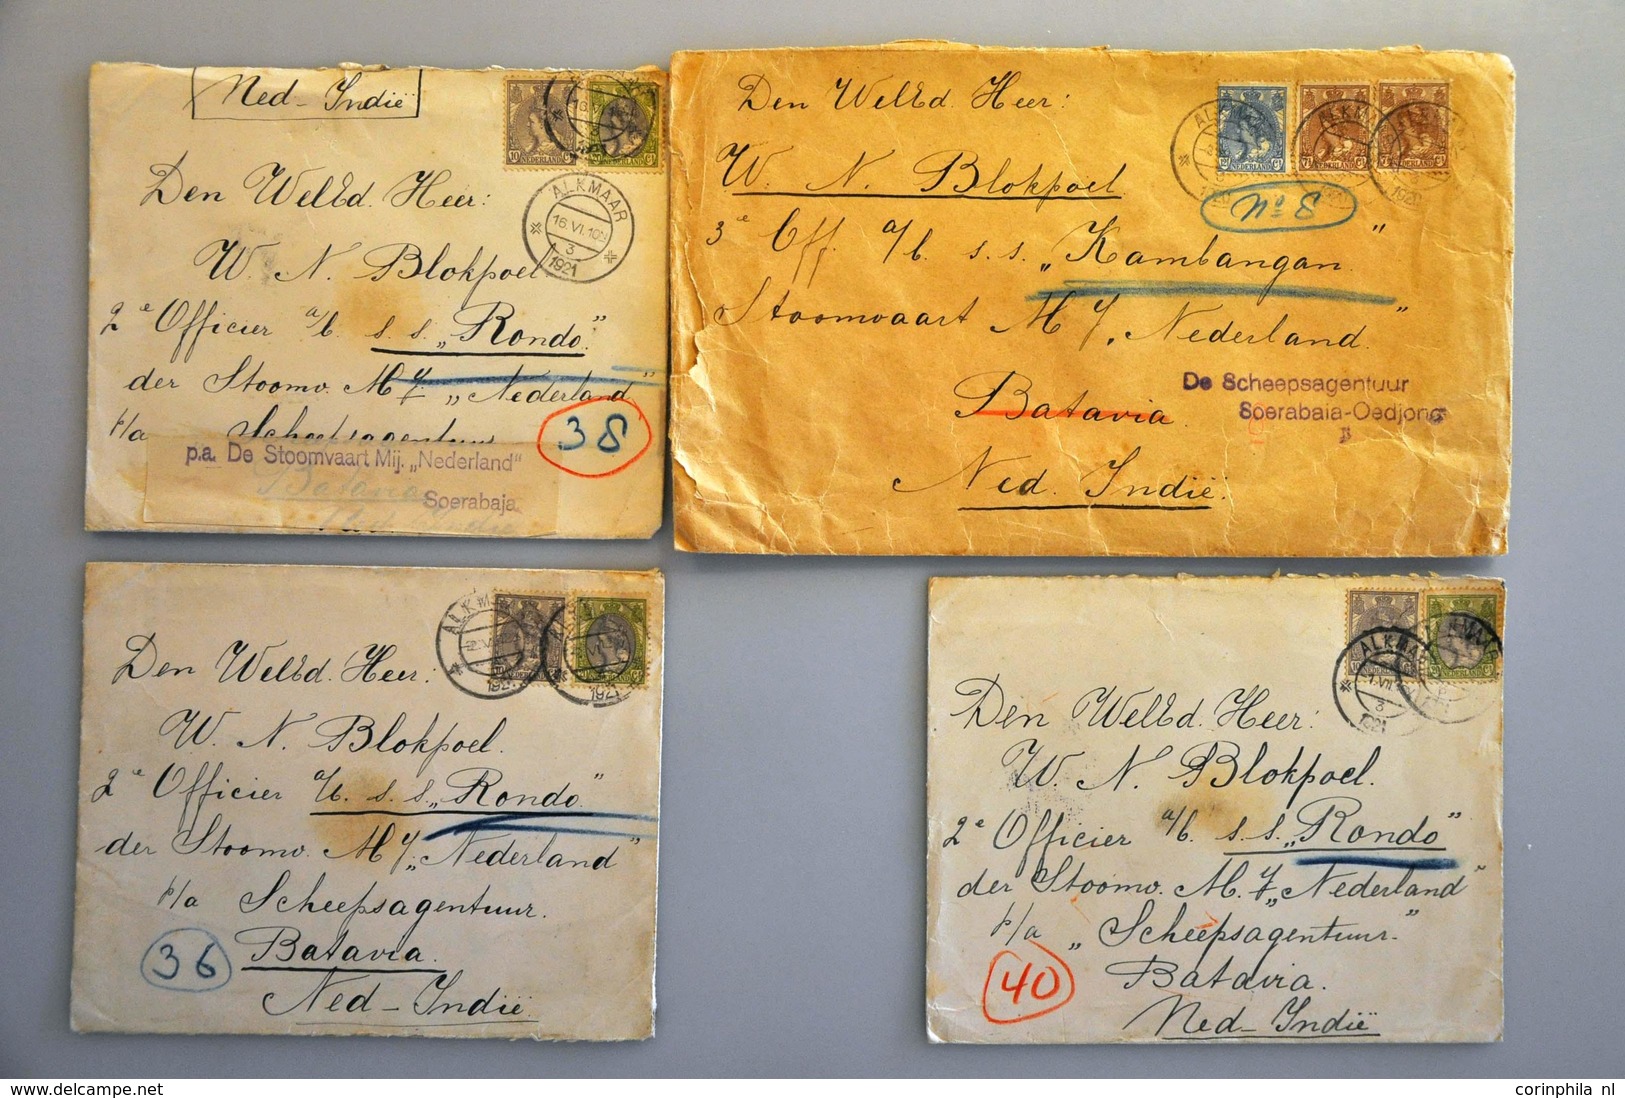 Ned-Indië
10 NEDERLAND Ct
ALKMAAR
16.VI.10
3
1921
Den WelEd. Heer:
W. N. Blokpoel
2e Officier a/b s.s. „Rondo"
der Stoomv. Mij. „Nederland"
p/a Scheepsagentuur
38
p.a. De Stoomvaart Mij. „Nederland"
Soerabaja
Batavia
Ned-Indië
Den WelEd. Heer:
W. N. Blokpoel
No 8
3e Off. a/b s.s. „Kambangan"
Stoomvaart Mij. „Nederland"
Batavia
De Scheepsagentuur
Soerabaia-Oedjong
Ned. Indië.
NEDERLAND
7½ NEDERLAND Ct
7½ NEDERLAND Ct
ALKMAAR
Den WelEd. Heer:
W. N. Blokpoel.
2e Officier a/b. s.s. „Rondo"
der Stoomv. Mij. „Nederland"
p/a Scheepsagentuur.
36
Batavia.
Ned-Indië
ALKMAAR
3
1921
Den WelEd. Heer:
W. N. Blokpoel.
2e Officier a/b s.s. „Rondo"
der Stoomv. Mij. „Nederland"
p/a „Scheepsagentuur."
40
Batavia.
Ned-Indië
corinphila nl